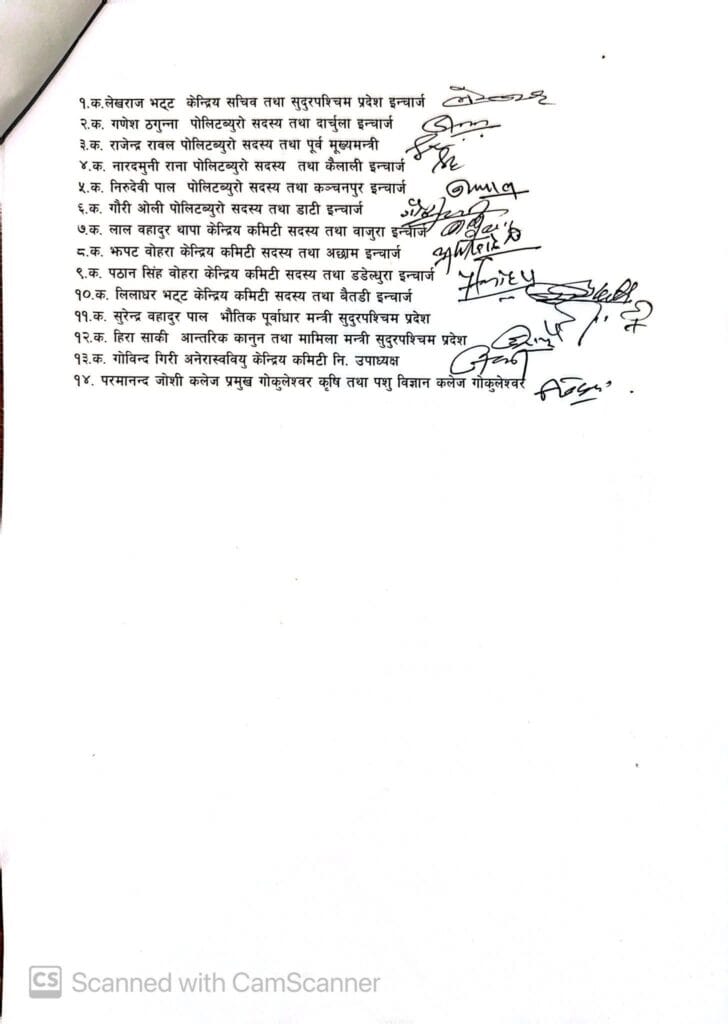 १.क.लेखराज भट्ट केन्द्रिय सचिव तथा सुदुरपश्चिम प्रदेश इन्चार्ज
२.क. गणेश ठगुन्ना पोलिटब्युरो सदस्य तथा दार्चुला इन्चार्ज
३.क. राजेन्द्र रावल पोलिटब्युरो सदस्य तथा पूर्व मूख्यमन्त्री
४.क. नारदमुनी राना पोलिटब्युरो सदस्य तथा कैलाली इन्चार्ज
५.क. निरुदेवी पाल पोलिटब्युरो सदस्य तथा कञ्चनपुर इन्चार्ज
६.क. गौरी ओली पोलिटब्युरो सदस्य तथा डाटी इन्चार्ज
७.क. लाल वहादुर थापा केन्द्रिय कमिटी सदस्य तथा वाजुरा इन्चार्ज
८.क. झपट वोहरा केन्द्रिय कमिटी सदस्य तथा अछाम इन्चार्ज
९.क. पठान सिंह वोहरा केन्द्रिय कमिटी सदस्य तथा डडेल्धुरा इन्चार्ज
१०.क. लिलाधर भट्ट केन्द्रिय कमिटी सदस्य तथा बैतडी इन्चार्ज
११.क. सुरेन्द्र वहादुर पाल भौतिक पूर्वाधार मन्त्री सुदुरपश्चिम प्रदेश
१२.क. हिरा साकी आन्तरिक कानुन तथा मामिला मन्त्री सुदुरपश्चिम प्रदेश
१३.क. गोविन्द गिरी अनेरास्ववियु केन्द्रिय कमिटी नि. उपाध्यक्ष
१४. परमानन्द जोशी कलेज प्रमुख गोकुलेश्वर कृषि तथा पशु विज्ञान कलेज गोकुलेश्वर
CS Scanned with CamScanner